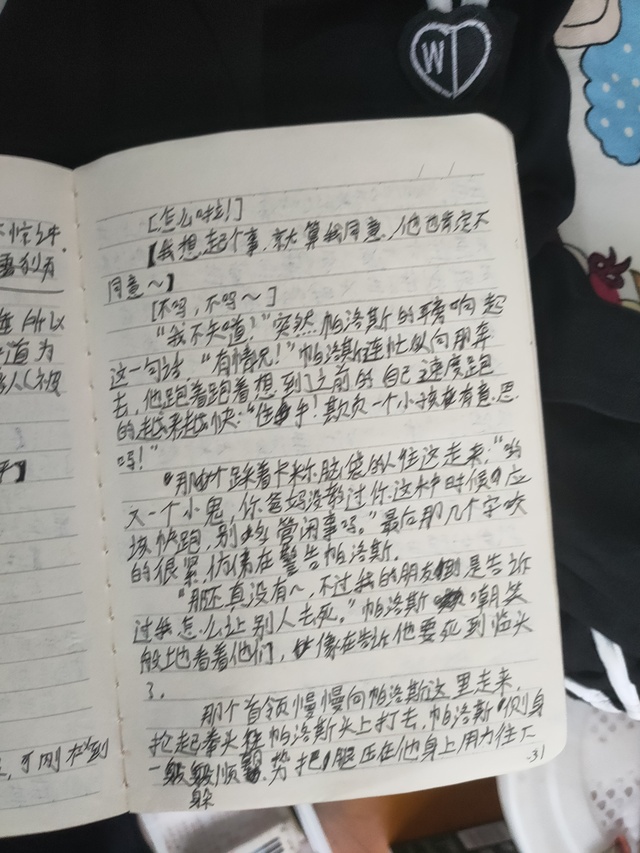 W
[怎么啦!]
【我想起个事,就算我同意,他也肯定不
同意~】
[不吗,不吗~]
"我不知道!"突然帕洛斯的耳旁响起
这一句话,"有情况!"帕洛斯连忙似向那奔
去,他跑着跑着想到了之前的自己速度跑
的越来越快:"住手!欺负一个小孩有意思
吗!"
"那个踩着卡米尔脑袋的人往这走来:"哟
又一个小鬼,你爸妈没教过你这种时候应
该快跑,别管闲事吗。"最后那几个字咬
的很紧,仿佛在警告帕洛斯.
"那还真没有~,不过我的朋友倒是告诉
过我怎么让别人去死。"帕洛斯嘲笑
般地看着他们,像在告诉他要死到临头
了.
那个首领慢慢向帕洛斯这里走来,
抡起拳头往帕洛斯头上打去,帕洛斯侧身
一躲顺势把腿压在他身上用力往下
31
所以
道为
,可刚在
到